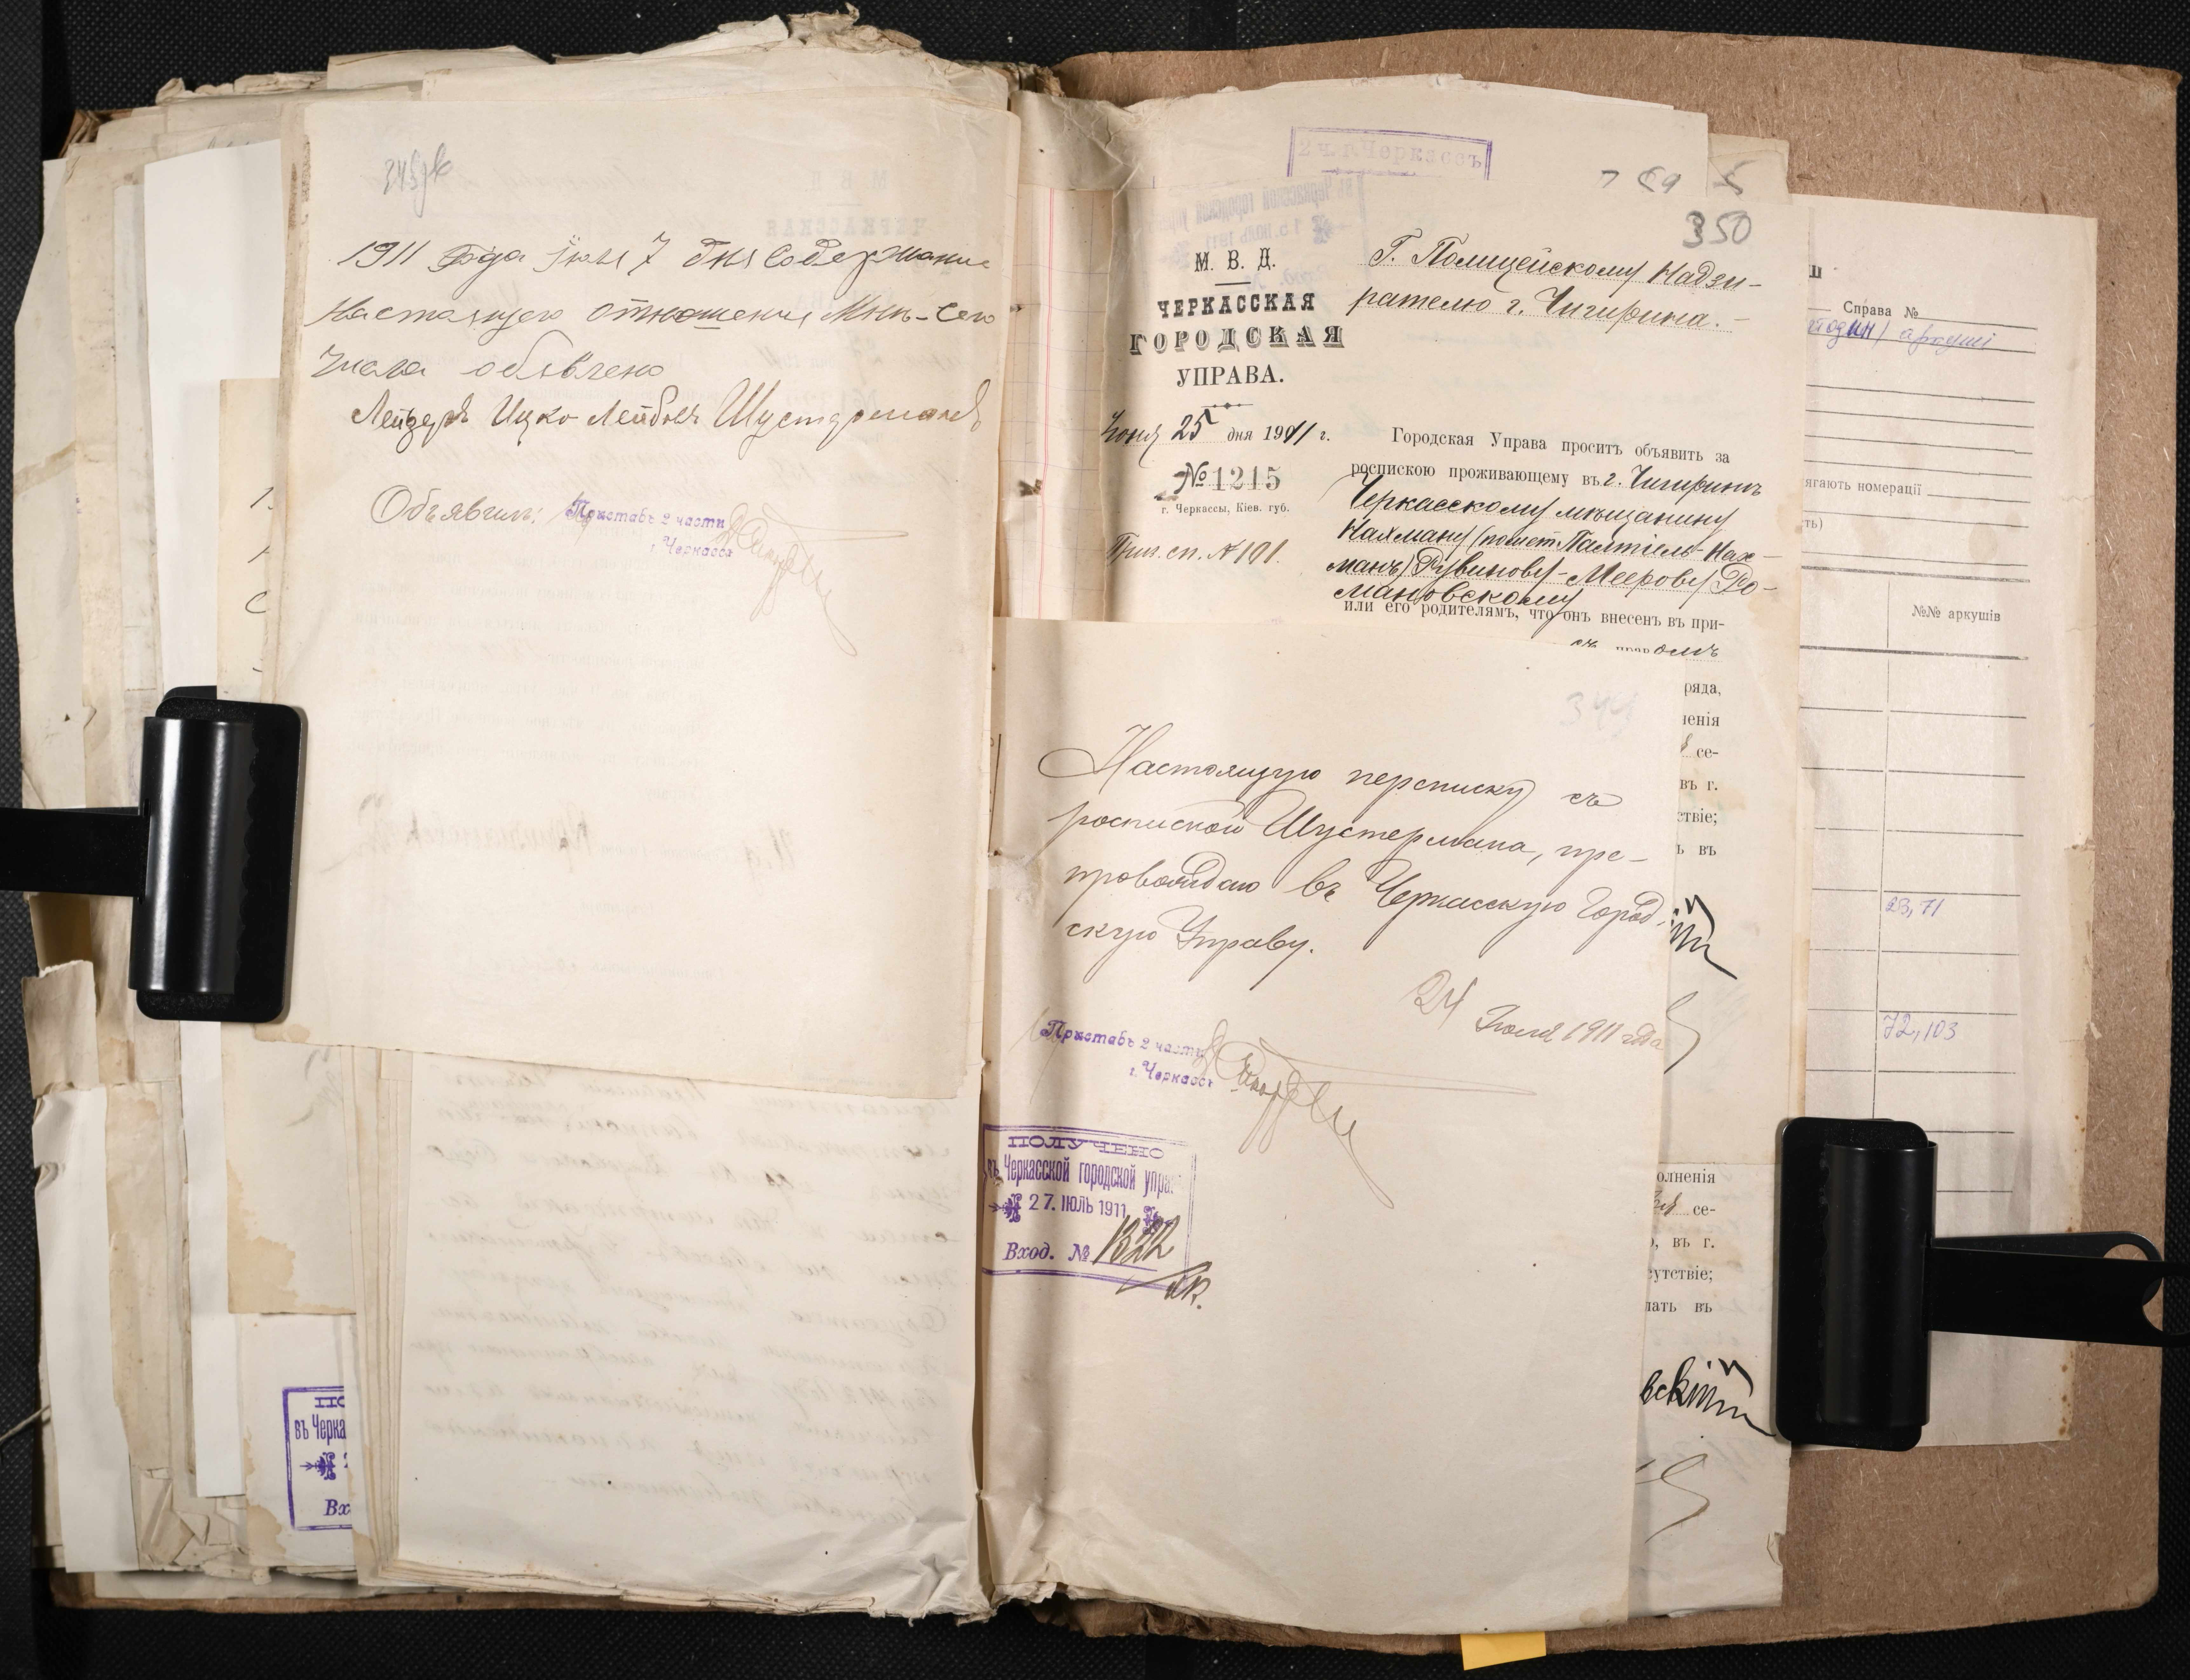 1911 года Іюля 7 дня содержание
настоящего отношения мнѣ сего
числа объявлено
Лейзеръ Ицко Лейбовъ Шустерманъ
Объявилъ: Приставъ 2 части
г. Черкассъ
2 ч. г. Черкассъ
350
М. В. Д.
ЧЕРКАССКАЯ
ГОРОДСКАЯ
УПРАВА.
Іюня 25 дня 1911 г.
№ 1215
г. Черкассы, Кіев. губ.
Приз. сп. № 101.
Г. Полицейскому Надзи-
рателю г. Чигирина.
Городская Управа проситъ объявить за
роспискою проживающему въ г. Чигиринѣ
Черкасскому мѣщанину
Нахману (помет. Палтіель-Нах-
манъ) Рувинову-Меерову Ро-
мановскому
или его родителямъ, что онъ внесенъ въ при-
ряда,
ленія
се-
въ г.
ствіе;
въ
344
Настоящую переписку съ
роспиской Шустермана, пре-
провождаю въ Черкасскую Город-
скую Управу.
24 Іюля 1911 года
Приставъ 2 части
г. Черкассъ
ПОЛУЧЕНО
въ Черкасской городской упра
27. ІЮЛЬ 1911
Вход. № 1322
олненія
се-
въ г.
сутствіе;
лать въ
вскій
ПО
въ Черка
Вх
Справа №
один) аркуші
ягають номерації
ть)
№№ аркушів
23, 71
72, 103